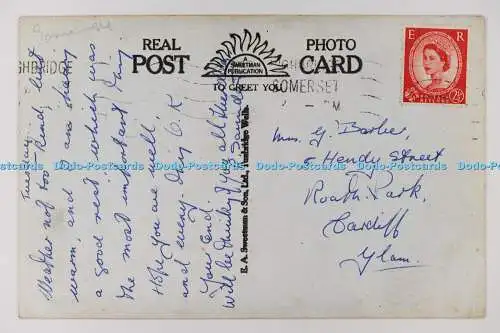 Tuesday.
Weather not too kind, but
warm, and am having
a good rest which was
the most important thing.
Hope you are well
and everything O.K
Your end.
Will be thinking of you all
REAL PHOTO
POST CARD
SWEETMAN
PUBLICATION
TO GREET YOU
GHBRIDGE
SOMERSET
E R
E. A. Sweetman & Son, Ltd., Tunbridge Wells.
Mrs. G. Barber,
5 Hendy Street
Roath Park,
Cardiff
Glam.
Dodo-Postcards Dodo-Postcards Dodo-Postcards Dodo-Postcards Dodo-Postcards